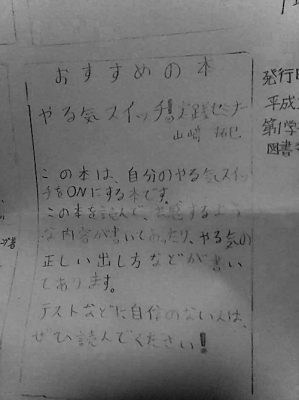 おすすめの本
やる気スイッチ実践セミナー
山﨑 拓巳
この本は、自分のやる気スイッ
チをONにする本です。
この本を読んで、するよう
な内容が書いてあったり、やる気の
正しい出し方などが書い
てあります。
テストなどに自信のない人は、
ぜひ読んでください!
発行日
平成
第1学
図書